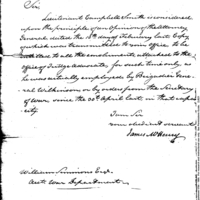 Sir
Lieutenant Campbell Smith is considered
upon the principle of an opinion of the Attorney
General dated the 15th day of February last Copy
of which was transmitted to your office to be
entitled to all the emoluments attached to the
office of Judge Advocate, for such time only as
he was actually employed by Brigadier Gene
ral Wilkinson or by orders from the Secretary
of War since the 30th April last in that capa
city.
I am Sir
your obedient servant
James McHenry
William Simmons Esq.
Acct. War Department